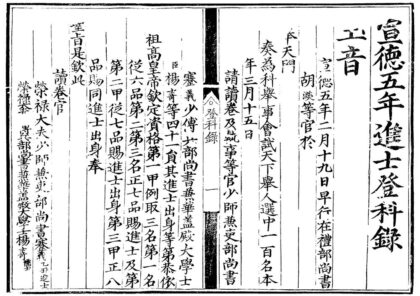 宣德五年進士登科錄
玉音
宣德五年二月十九日早行在禮部尚書
胡濙等官於
奉天門
奏為科舉事會試天下舉人選中一百名本
年三月十五日
請讀卷及執事等官少師兼吏部尚書
蹇義少傅
尚書兼
謹身殿大學士
臣楊
等四十一員其進士出身等第恭依
祖高皇帝欽定資格第一甲例取三名第一名
從六品第二第三名正七品賜進士及第
第二甲從七品賜進士出身第三甲正八
品賜同進士出身奉
聖旨是欽此
讀卷官
榮祿大夫少師兼吏部尚書蹇義
登科錄
一